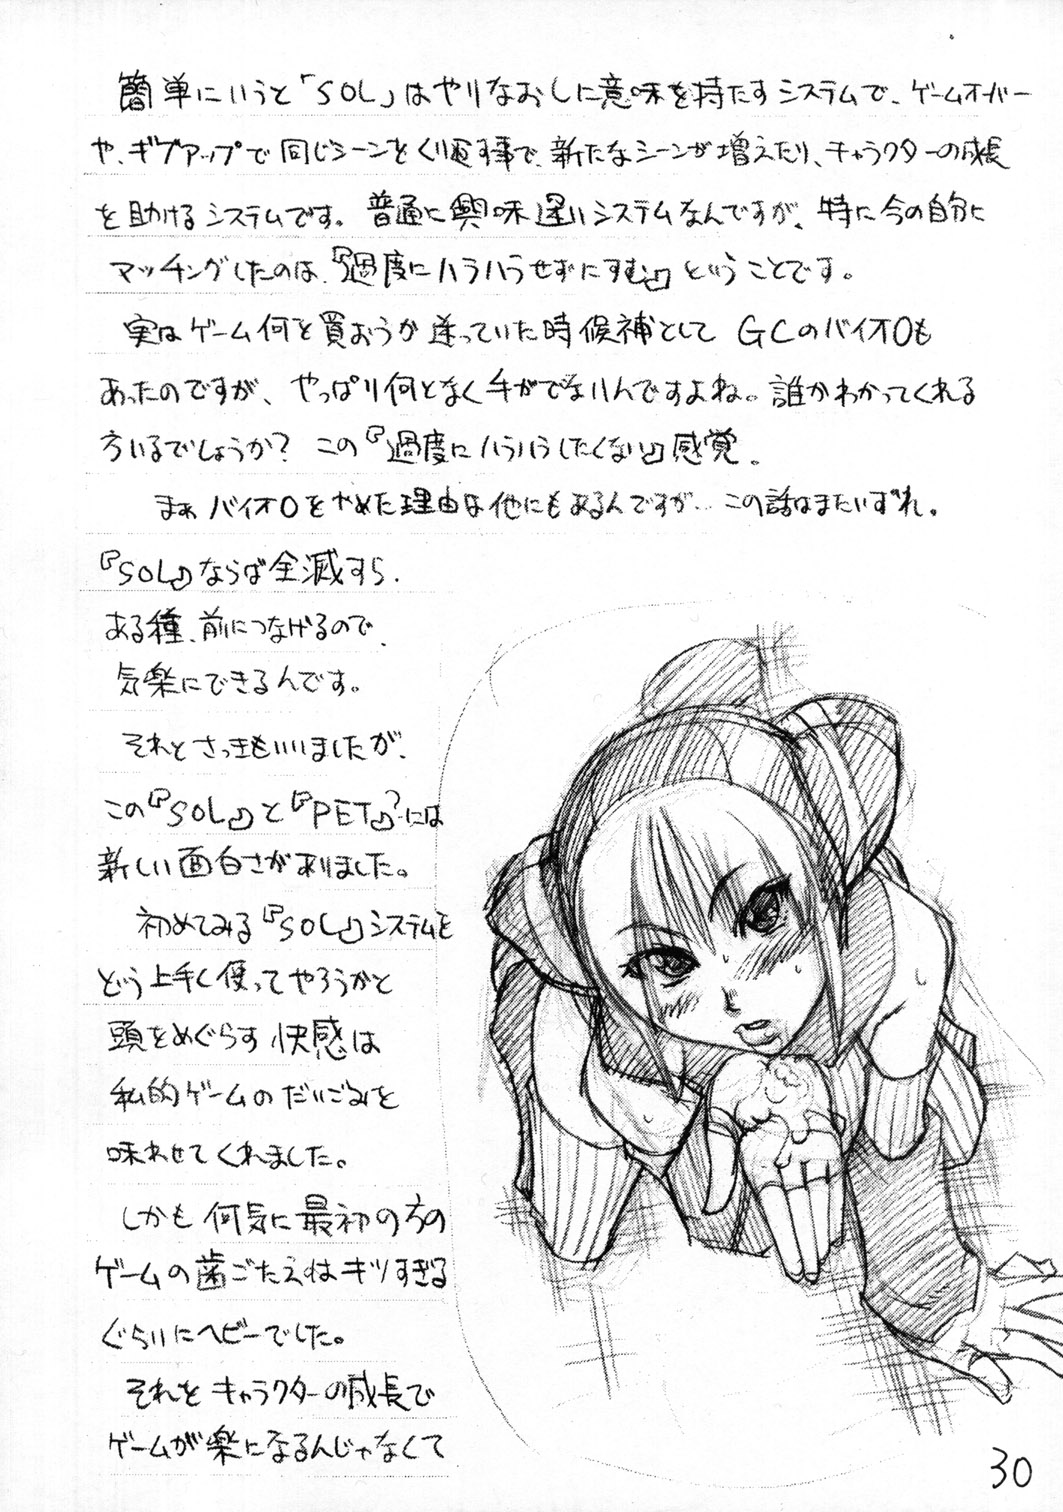 簡単にいうと「SOL」はやりなおしに意味を持たすシステムで、ゲームオーバー
や、ギブアップで同じシーンをくり返す事で、新たなシーンが増えたり、キャラクターの成長
を助けるシステムです。普通に興味深いシステムなんですが、特に今の自分に
マッチングしたのは、『過度にハラハラせずにすむ』ということです。
実はゲーム何を買おうか迷っていた時候補として GCのバイオ0も
あったのですが、やっぱり何となく手がでないんですよね。誰かわかってくれる
方いるでしょうか？この『過度にハラハラしたくない』感覚。
まぁバイオ0をやめた理由は他にもあるんですが…この話はまたいずれ。
『SOL』ならば全滅すら、
ある種、前につなげるので、
気楽にできるんです。
それとさっきもいいましたが、
この『SOL』と『PET』?には
新しい面白さがありました。
初めてみる『SOL』システムを
どう上手く使ってやろうかと
頭をめぐらす快感は
私的ゲームのだいごみを
味わせてくれました。
しかも何気に最初の方の
ゲームの歯ごたえはキツすぎる
ぐらいにヘビーでした。
それをキャラクターの成長で
ゲームが楽になるんじゃなくて
30